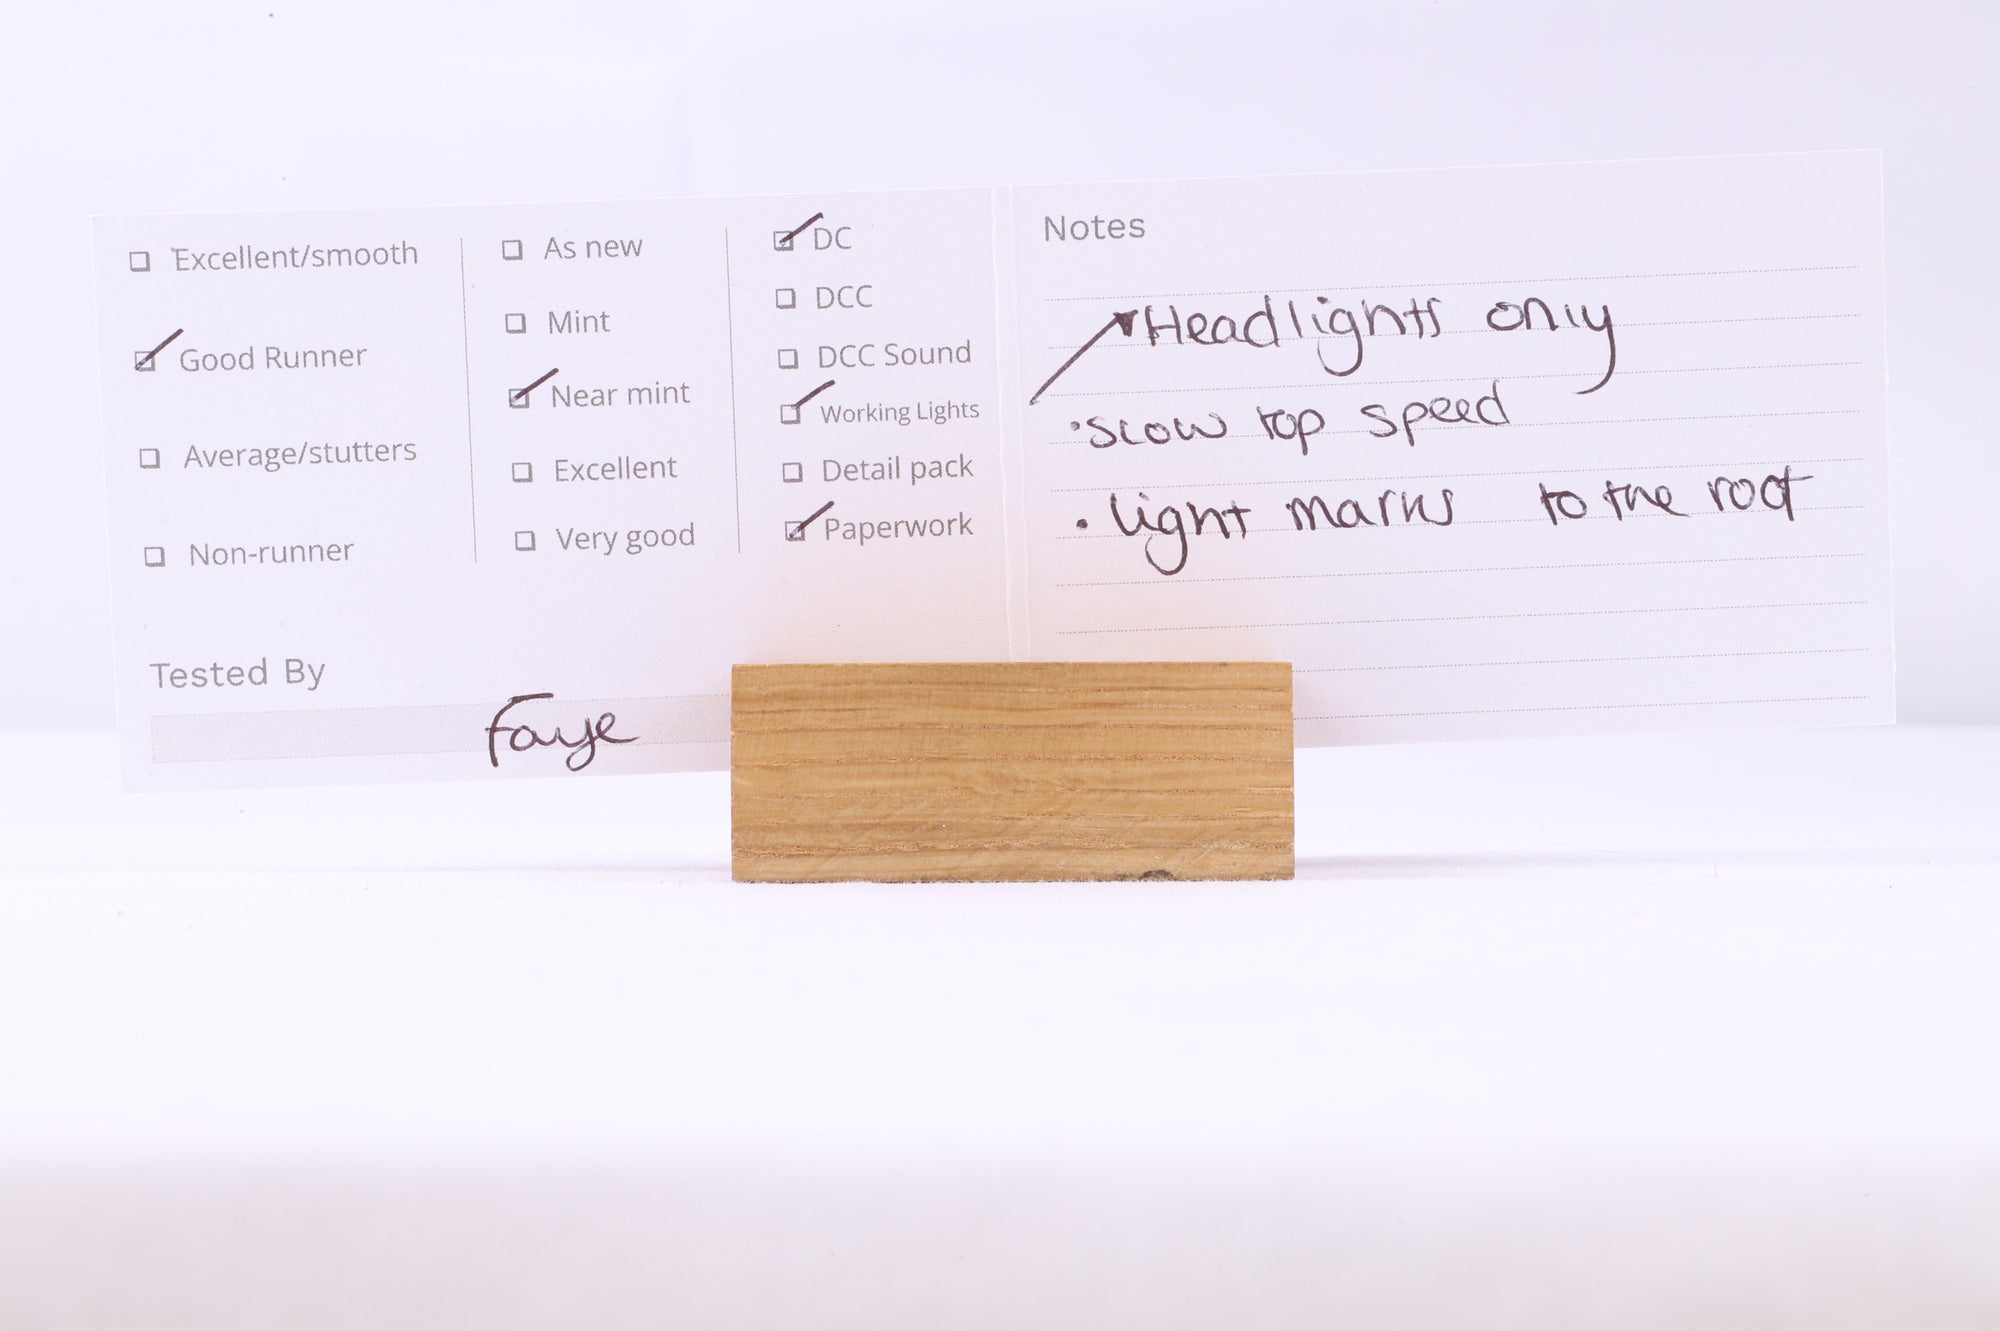 Excellent/smooth
Good Runner
Average/stutters
Non-runner
As new
Mint
Near mint
Excellent
Very good
DC
DCC
DCC Sound
Working Lights
Detail pack
Paperwork
Tested By
Faye
Notes
Headlights only
• Slow top speed
• light marks to the roof